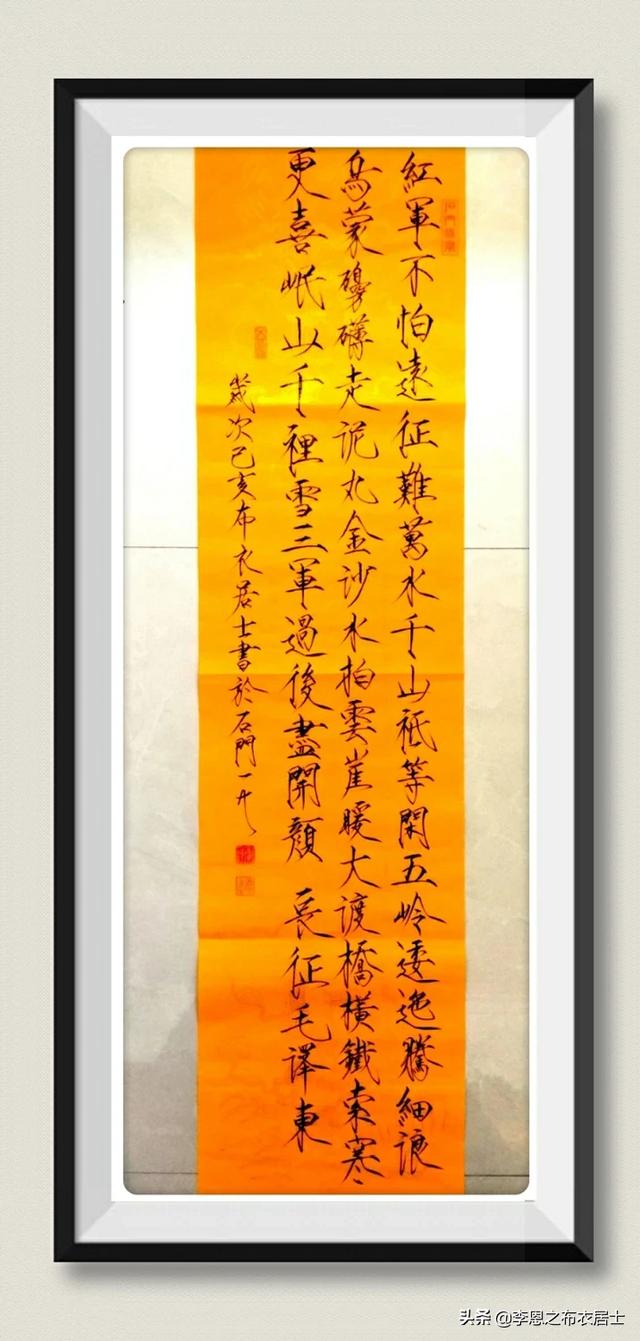 紅軍不怕遠征難萬水千山祇等閑五岭逶迤騰細浪
烏蒙磅礴走泥丸金沙水拍雲崖暖大渡橋橫鐵索寒
更喜岷山千裡雪三軍過後盡開顏 長征毛澤東
歲次己亥布衣居士書於石門一凡
头条 @李恩之布衣居士